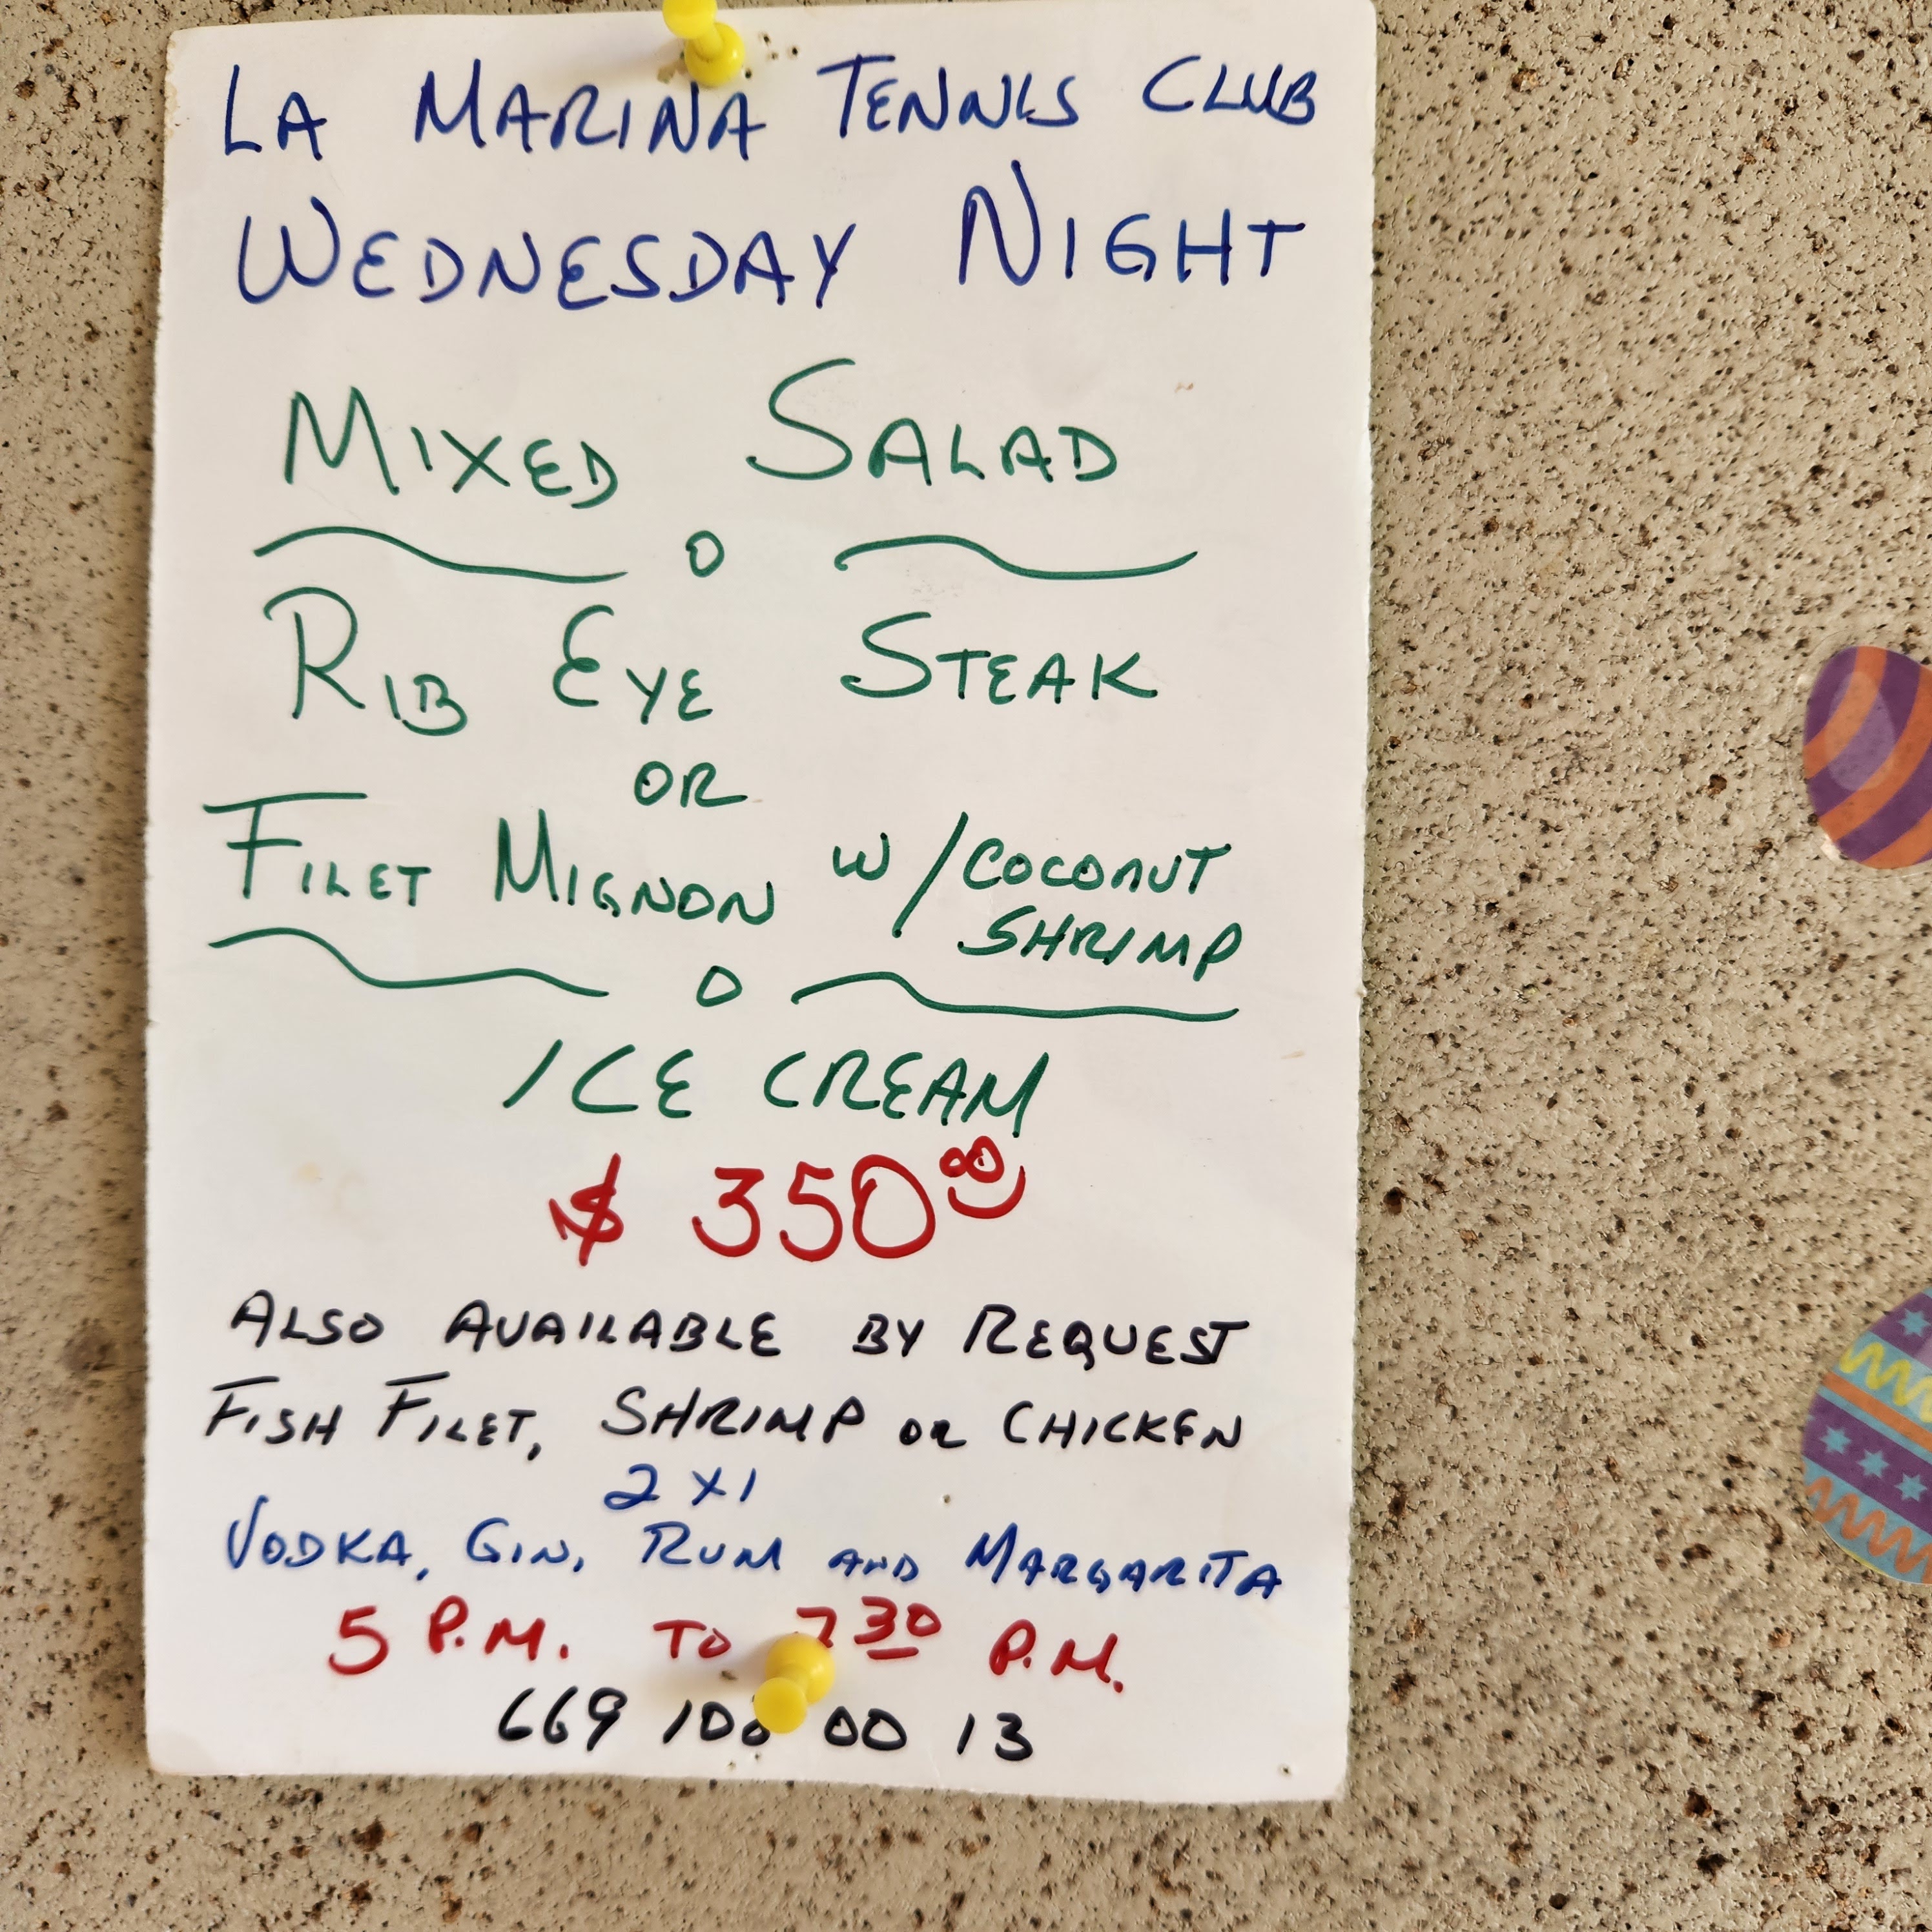 LA MARINA TENNIS CLUB
WEDNESDAY NIGHT
MIXED SALAD
RIB EYE STEAK
OR
FILET MIGNON W/COCONUT
SHRIMP
ICE CREAM
$ 350 00
ALSO AVAILABLE BY REQUEST
FISH FILET, SHRIMP OR CHICKEN
2 X 1
VODKA, GIN, RUM AND MARGARITA
5 P.M. TO 7 30 P.M.
669 00 13